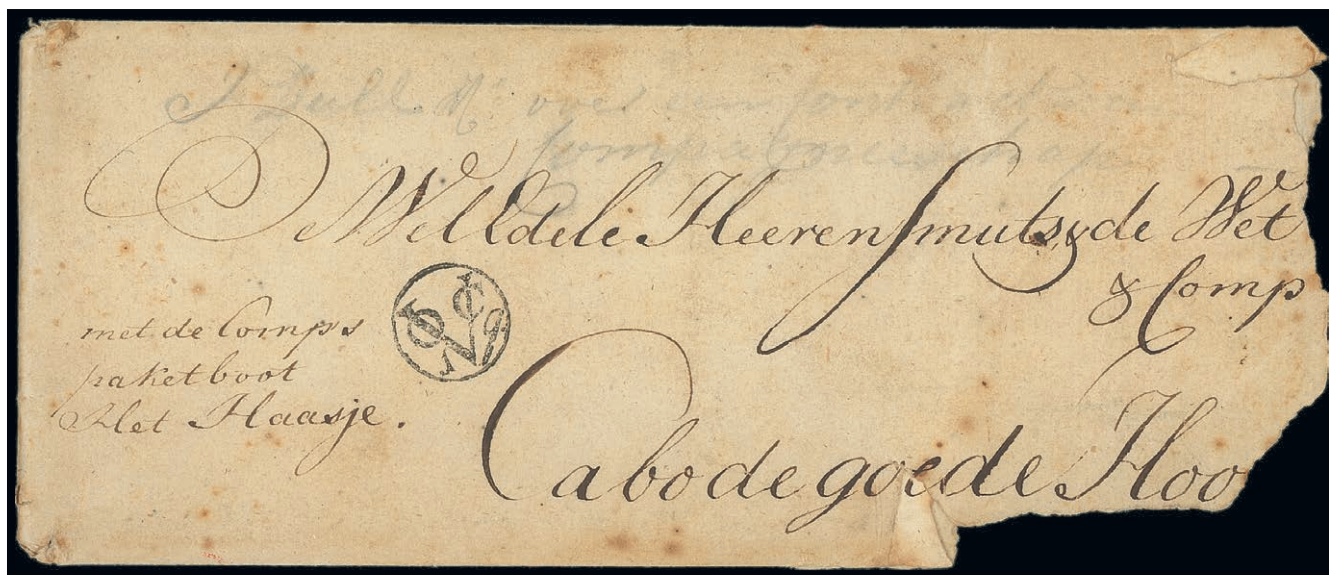 over een
De WelEdele Heeren Smuts, de Wet
& Comp
VOC
met de Comps
paketboot
Het Haasje.
Cabo de goede Hoo